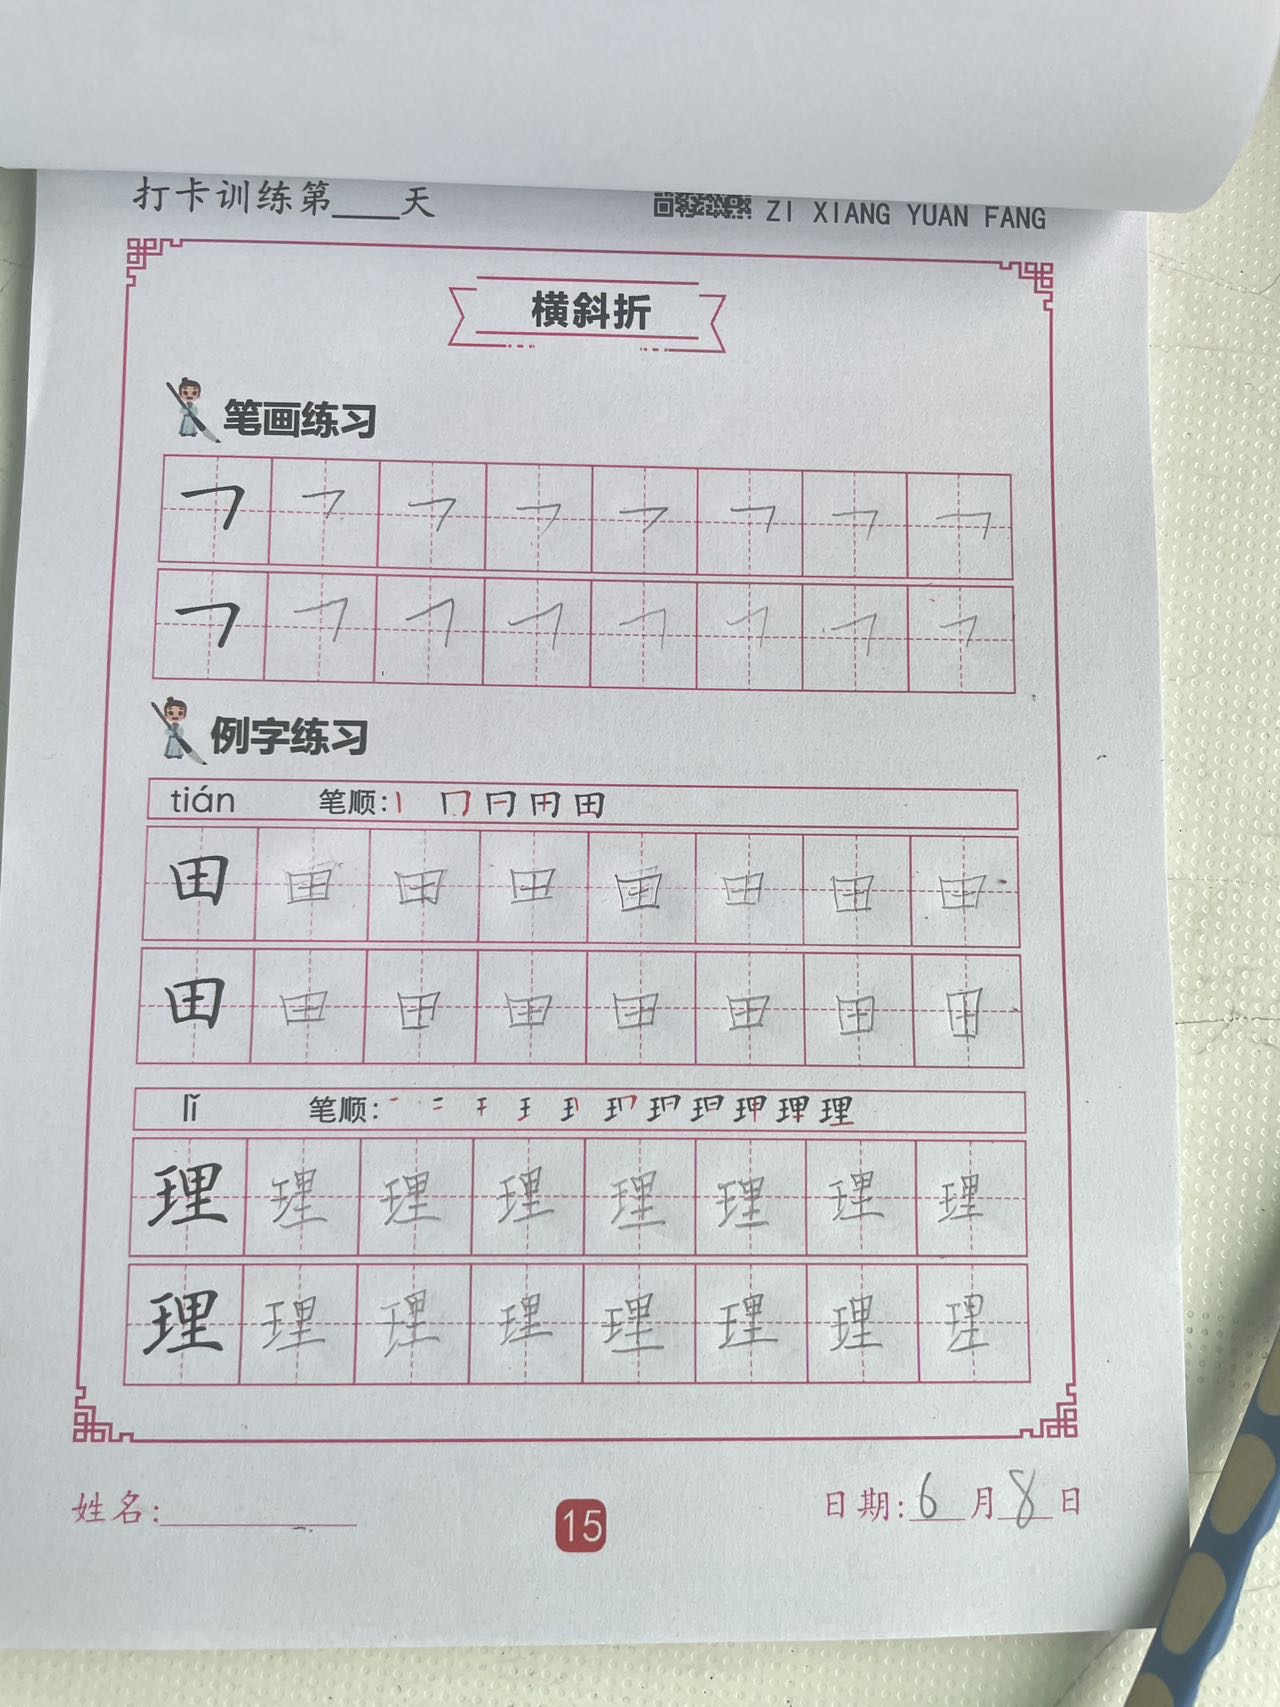 打卡训练第____天
ZI XIANG YUAN FANG
横斜折
笔画练习
㇇ ㇇ ㇇ ㇇ ㇇ ㇇ ㇇ ㇇
㇇ ㇇ ㇇ ㇇ ㇇ ㇇ ㇇ ㇇
例字练习
tián 笔顺: 丨 冂 日 田 田
田 田 田 田 田 田 田 田
田 田 田 田 田 田 田 田
lǐ 笔顺:
理 理 理 理 理 理 理 理
理 理 理 理 理 理 理 理
姓名:____ 15 日期: 6 月 8 日